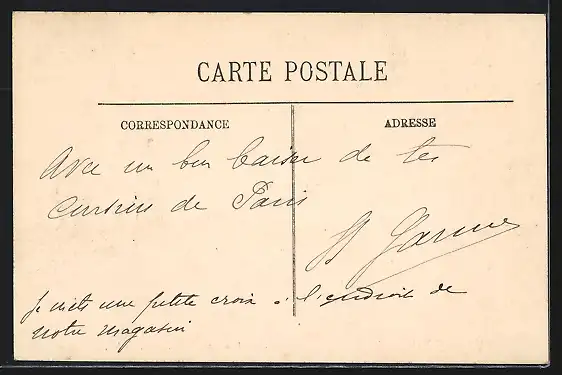 CARTE POSTALE
CORRESPONDANCE
ADRESSE
Avec un bon baiser de tes
cousins de Paris
Je mets une petite croix à l'endroit de
notre magasin